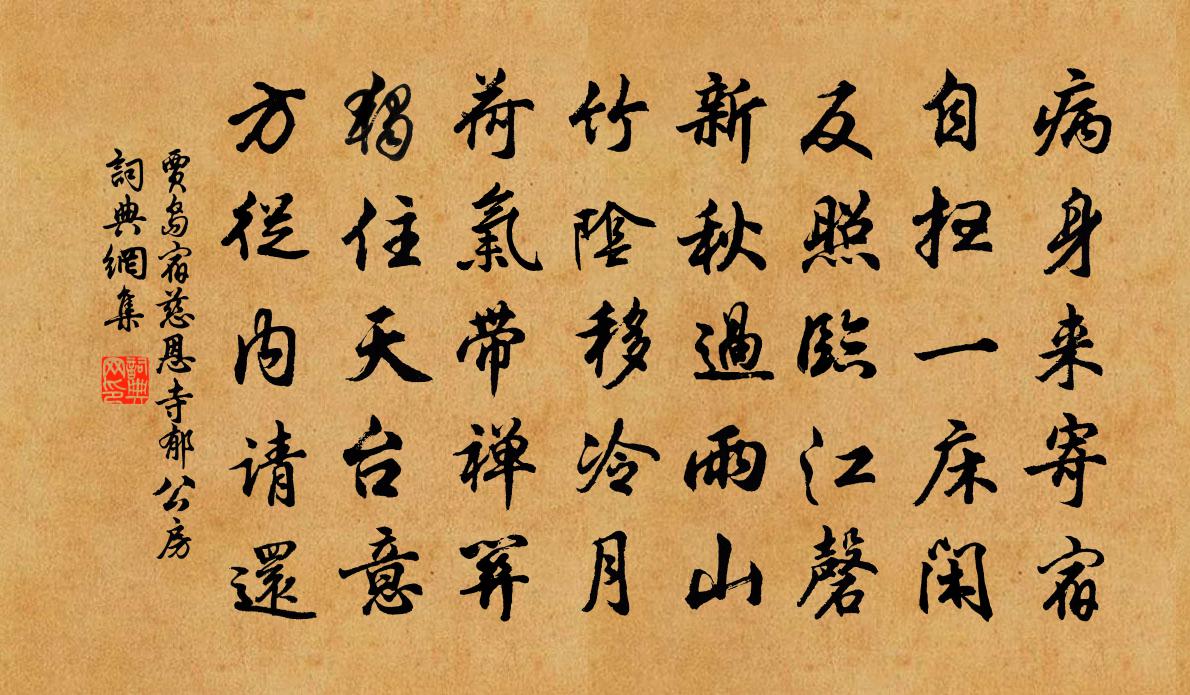 病身来寄宿
自扫一床闲
反照臨江磬
新秋過雨山
竹陰移冷月
荷氣带禅關
獨住天台意
方從内请還
賈島宿慈恩寺郁公房
詞典網集
詞典网印